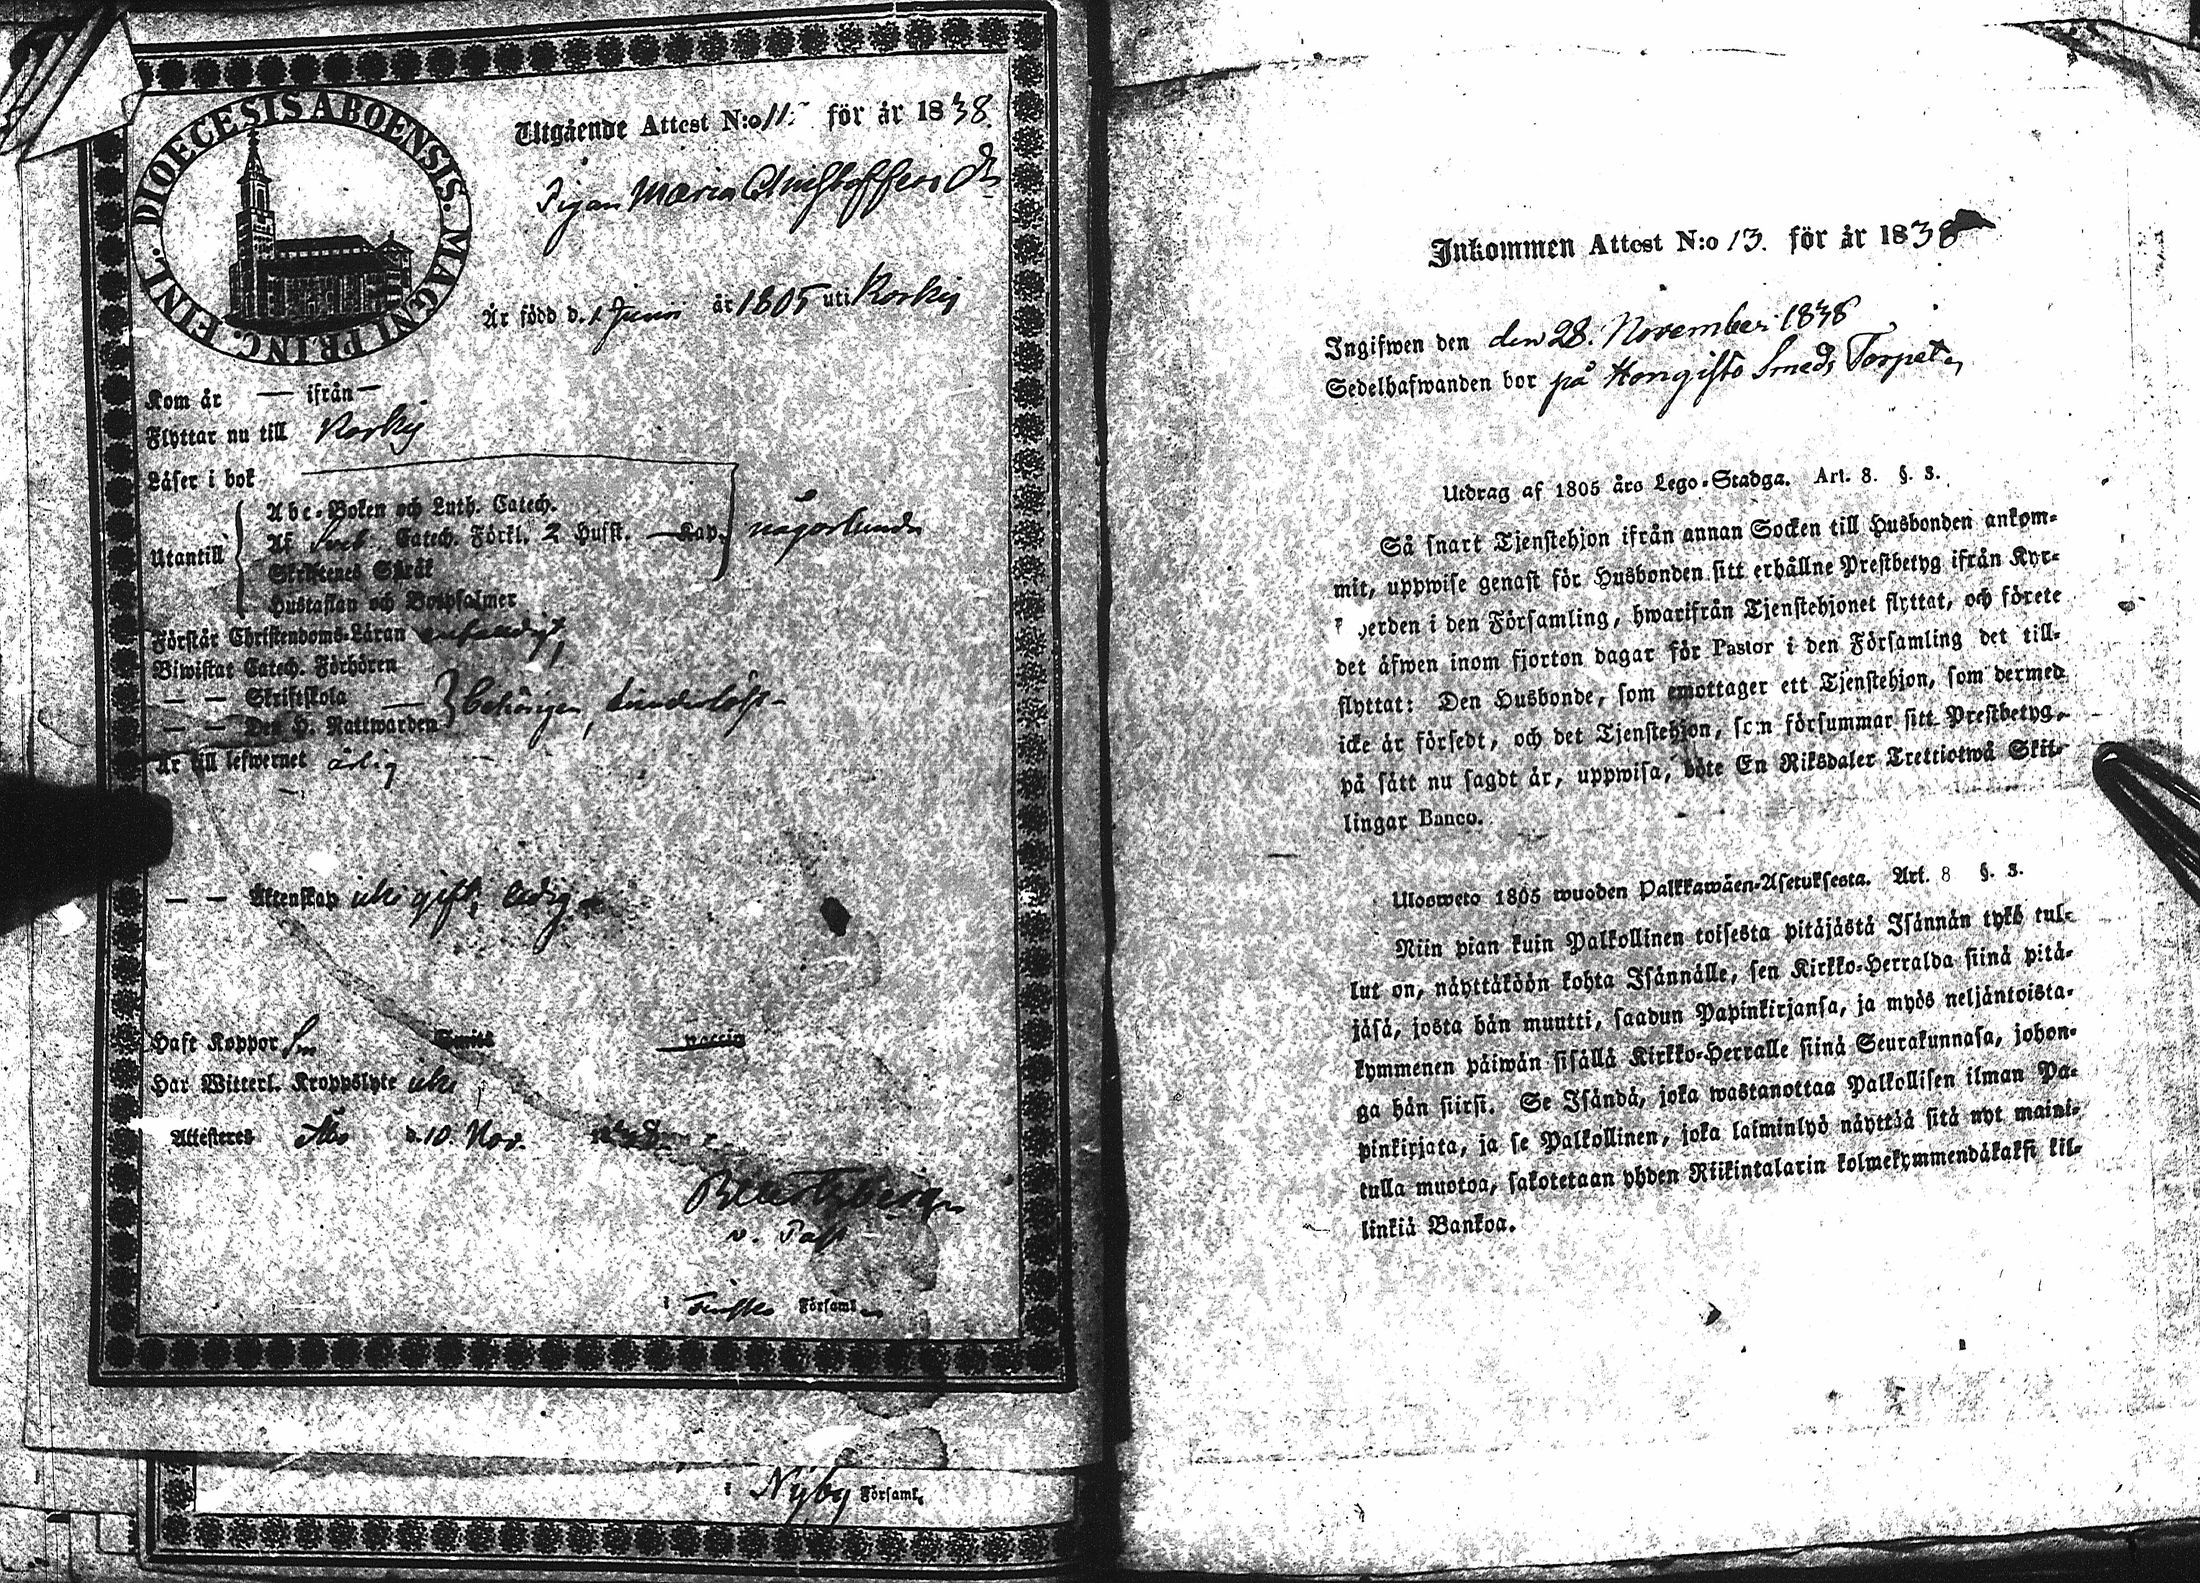 DIOECESIS ABOENSIS. MAGNI PRINC. FINL.
Utgående Attest N:o 11. för år 1838.
Pigan Maria Christoffers Dr
Är född d. 1 Junii år 1805 uti Korkis
Kom år — ifrån —
Flyttar nu till Korkis
Läser i bok
Utantill
Abc-Boken och Luth. Catech.
Af Sveb. Catech. Förkl. 2 Husst. — Kap.
någorlunda
Skriftenes Språk
Hustaflan och Botpsalmer
Förstår Christendoms-Läran enfaldigt,
Biwistat Catech. Förhören
— — Skriftskola —
— — Den H. Nattwarden
behörigen,
Är till lefwernet ärlig
— — Äktenskap icke gift, ledig
Haft Koppor Sm
Smitt
waccin
Har Witterl. Kroppslyte icke
Attesteras Åbo d. 10. Nov.
v. Past
i Finska Församl.
i Nÿby Församl.
Inkommen Attest N:o 13. för år 1838
Ingifwen den den 28. November 1838
Sedelhafwanden bor på Hongisto Smeds Torpet
Utdrag af 1805 års Lego-Stadga. Art. 8. §. 3.
Så snart Tjenstehjon ifrån annan Socken till Husbonden ankom-
mit, uppwise genast för Husbonden sitt erhållne Prestbetyg ifrån Kyr-
herden i den Församling, hwarifrån Tjenstehjonet flyttat, och förete
det äfwen inom fjorton dagar för Pastor i den Församling det till-
flyttat: Den Husbonde, som emottager ett Tjenstehjon, som dermed
icke är försedt, och det Tjenstehjon, som försummar sitt Prestbetyg,
på sätt nu sagdt är, uppwisa, böte En Riksdaler Trettiotwå Skil-
lingar Banco.
Ulosweto 1805 wuoden Palkkawäen-Asetuksesta. Art. 8 §. 3.
Niin pian kuin Palkollinen toisesta pitäjästä Isännän tykö tul-
lut on, näyttäköön kohta Isännälle, sen Kirkko-Herralda siinä pitä-
jäsä, josta hän muutti, saadun Papinkirjansa, ja myös neljäntoista-
kymmenen päiwän sisällä Kirkko-Herralle siinä Seurakunnasa, johon-
ga hän siirsi. Se Isändä, joka wastanottaa Palkollisen ilman Pa-
pinkirjata, ja se Palkollinen, joka laiminlyö näyttää sitä nyt maini-
tulla muotoa, sakotetaan yhden Riikintalarin kolmekymmendäkaksi kil-
linkiä Bankoa.